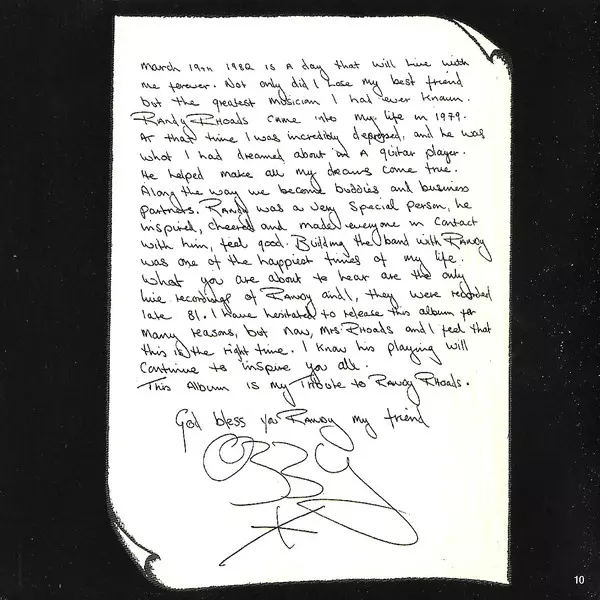 March 19th 1982 is a day that will live with
me forever. Not only did I lose my best friend
but the greatest musician I had ever known.
Randy Rhoads came into my life in 1979.
At that time I was incredibly depressed, and he was
what I had dreamed about in a guitar player.
He helped make all my dreams come true.
Along the way we became buddies and business
partners. Randy was a very special person, he
inspired, cheered and made everyone in contact
with him, feel good. Building the band with Randy
was one of the happiest times of my life.
What you are about to hear are the only
live recordings of Randy and I, they were recorded
late 81. I have hesitated to release this album for
many reasons, but now, Mrs. Rhoads and I feel that
this is the right time. I know his playing will
continue to inspire you all.
This Album is my Tribute to Randy Rhoads.
God bless you Randy my friend
Ozzy
10